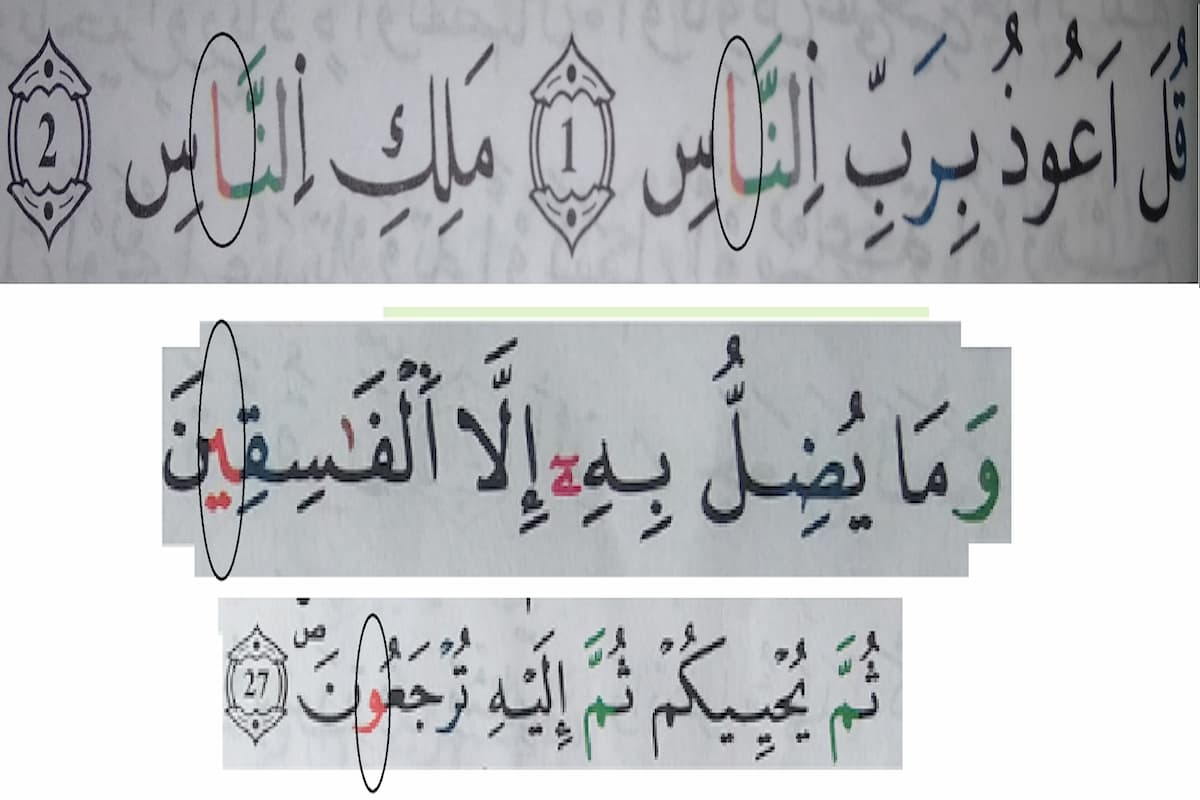 قُلَ اَعُوذُ بِرَبِّ اِلنَّاسِ 1 مَلِكِ اِلنَّاسِ 2
وَمَا يُضِلُّ بِهِۦ إِلَّا اَ۬لْفَٰسِقِينَ
ثُمَّ يُحْيِيكُمْ ثُمَّ إِلَيْهِ تُرْجَعُونَ ص 27